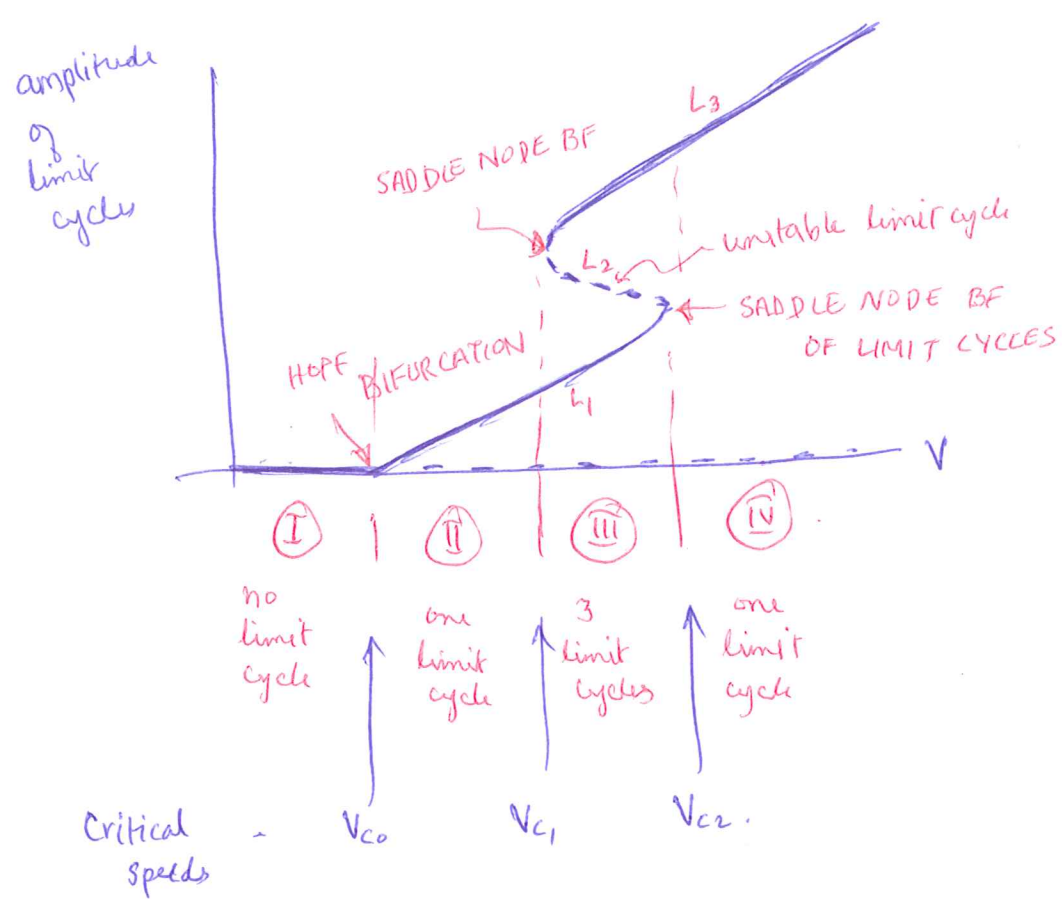 amplitude
of
limit
cycles
L3
SADDLE NODE BF
unstable limit cycle
L2
SADDLE NODE BF
OF LIMIT CYCLES
HOPF BIFURCATION
L1
V
I
II
III
IV
no
limit
cycle
one
limit
cycle
3
limit
cycles
one
limit
cycle
Critical
speeds
Vc0
Vc1
Vc2.